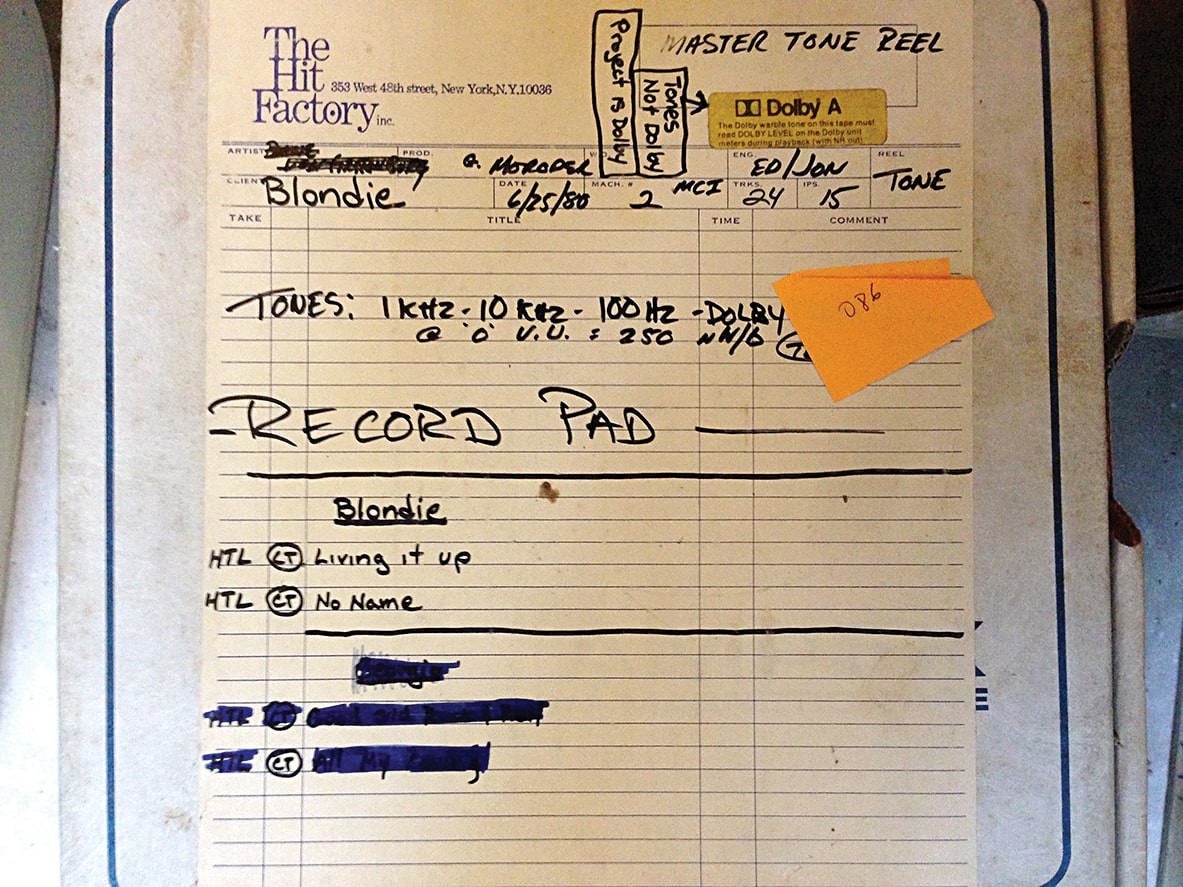 The
Hit
Factory inc.
353 West 48th street, New York, N.Y. 10036
Project is Dolby
Tones
Not Dolby
MASTER TONE REEL
Dolby A
The Dolby warble tone on this tape must
read DOLBY LEVEL on the Dolby unit
meters during playback (with NR out)
ARTIST
PROD. G. MORODER
ENG. ED/JON
REEL TONE
CLIENT Blondie
DATE 6/25/80
MACH. # 2 MCI
TRKS. 24
IPS. 15
TAKE TITLE TIME COMMENT
086
TONES: 1 KHZ - 10 KHZ - 100 HZ - DOLBY
@ "0" V.U. = 250 nW/
- RECORD PAD
Blondie
HTL CT Living it up
HTL CT No Name
HTL CT
HTL CT All My